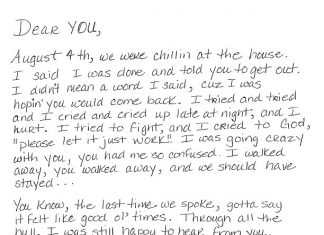 DEAR YOU,
August 4th, we were chillin at the house.
I said I was done and told you to get out.
I didn't mean a word I said, cuz I was
hopin' you would come back. I tried and tried
and I cried and cried up late at night, and I
hurt. I tried to fight, and I cried to God,
"please let it just work!" I was going crazy
with you, you had me so confused. I walked
away, you walked away, and we should have
stayed...
You know, the last time we spoke, gotta say
it felt like good ol' times. Through all the
bull, I was still happy to hear from you.